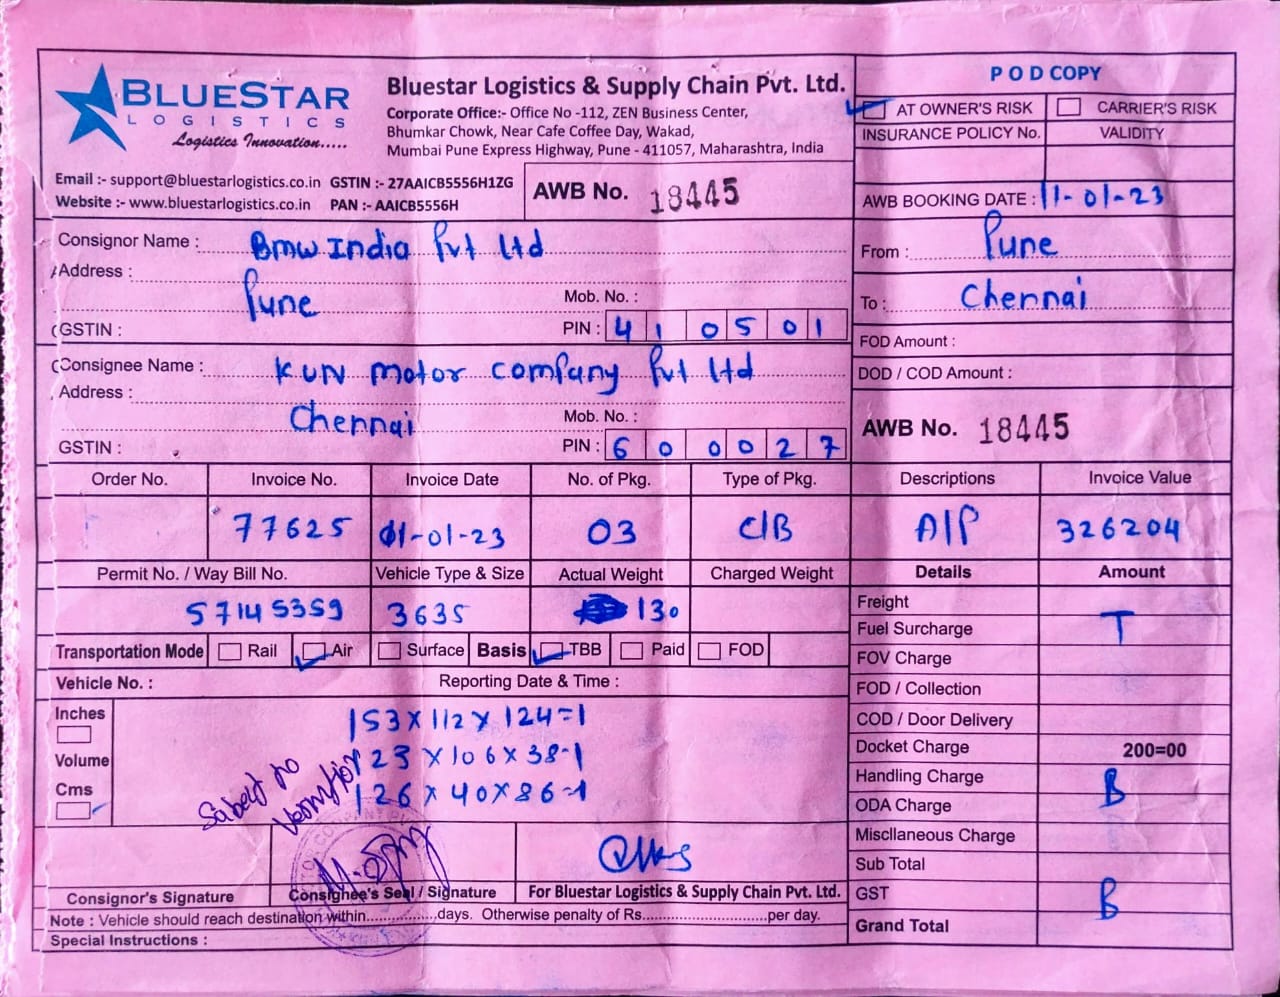 BLUESTAR
LOGISTICS
Logistics Innovation.....
Bluestar Logistics & Supply Chain Pvt. Ltd.
Corporate Office:- Office No -112, ZEN Business Center,
Bhumkar Chowk, Near Cafe Coffee Day, Wakad,
Mumbai Pune Express Highway, Pune - 411057, Maharashtra, India
Email :- support@bluestarlogistics.co.in GSTIN :- 27AAICB5556H1ZG
Website :- www.bluestarlogistics.co.in PAN :- AAICB5556H
AWB No. 18445
POD COPY
AT OWNER'S RISK CARRIER'S RISK
INSURANCE POLICY No. VALIDITY
AWB BOOKING DATE : 11-01-23
From : Pune
To : Chennai
FOD Amount :
DOD / COD Amount :
AWB No. 18445
Consignor Name : BMW India Pvt Ltd
Address :
Pune Mob. No. :
GSTIN : PIN : 410501
Consignee Name : KUN motor company Pvt Ltd
Address :
Chennai Mob. No. :
GSTIN : PIN : 600027
Order No. Invoice No. Invoice Date No. of Pkg. Type of Pkg. Descriptions Invoice Value
77625 01-01-23 03 C/B A/P 326204
Permit No. / Way Bill No. Vehicle Type & Size Actual Weight Charged Weight Details Amount
57145359 3635 130
Transportation Mode Rail Air Surface Basis TBB Paid FOD
Vehicle No. : Reporting Date & Time :
Inches
Volume
Cms
153 x 112 x 124=1
123 x 106 x 38-1
126 x 40 x 86-1
Freight
T
Fuel Surcharge
FOV Charge
FOD / Collection
COD / Door Delivery
Docket Charge 200=00
Handling Charge B
ODA Charge
Miscllaneous Charge
Sub Total
GST B
Grand Total
Consignor's Signature Consignee's Seal / Signature For Bluestar Logistics & Supply Chain Pvt. Ltd.
Note : Vehicle should reach destination within...............days. Otherwise penalty of Rs..........................per day.
Special Instructions :